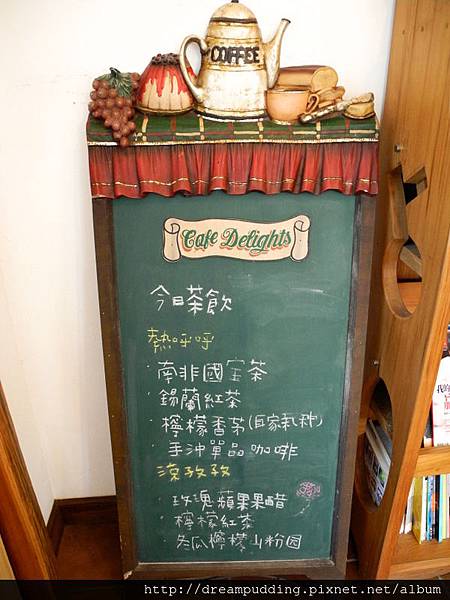 COFFEE
Cafe Delights
今日茶飲
熱呼呼
南非國宝茶
錫蘭紅茶
檸檬香茅(自家栽种)
手沖單品咖啡
涼孜孜
玫瑰蘋果果醋
檸檬紅茶
冬瓜檸檬山粉圓
我的
http://dreampudding.pixnet.net/album